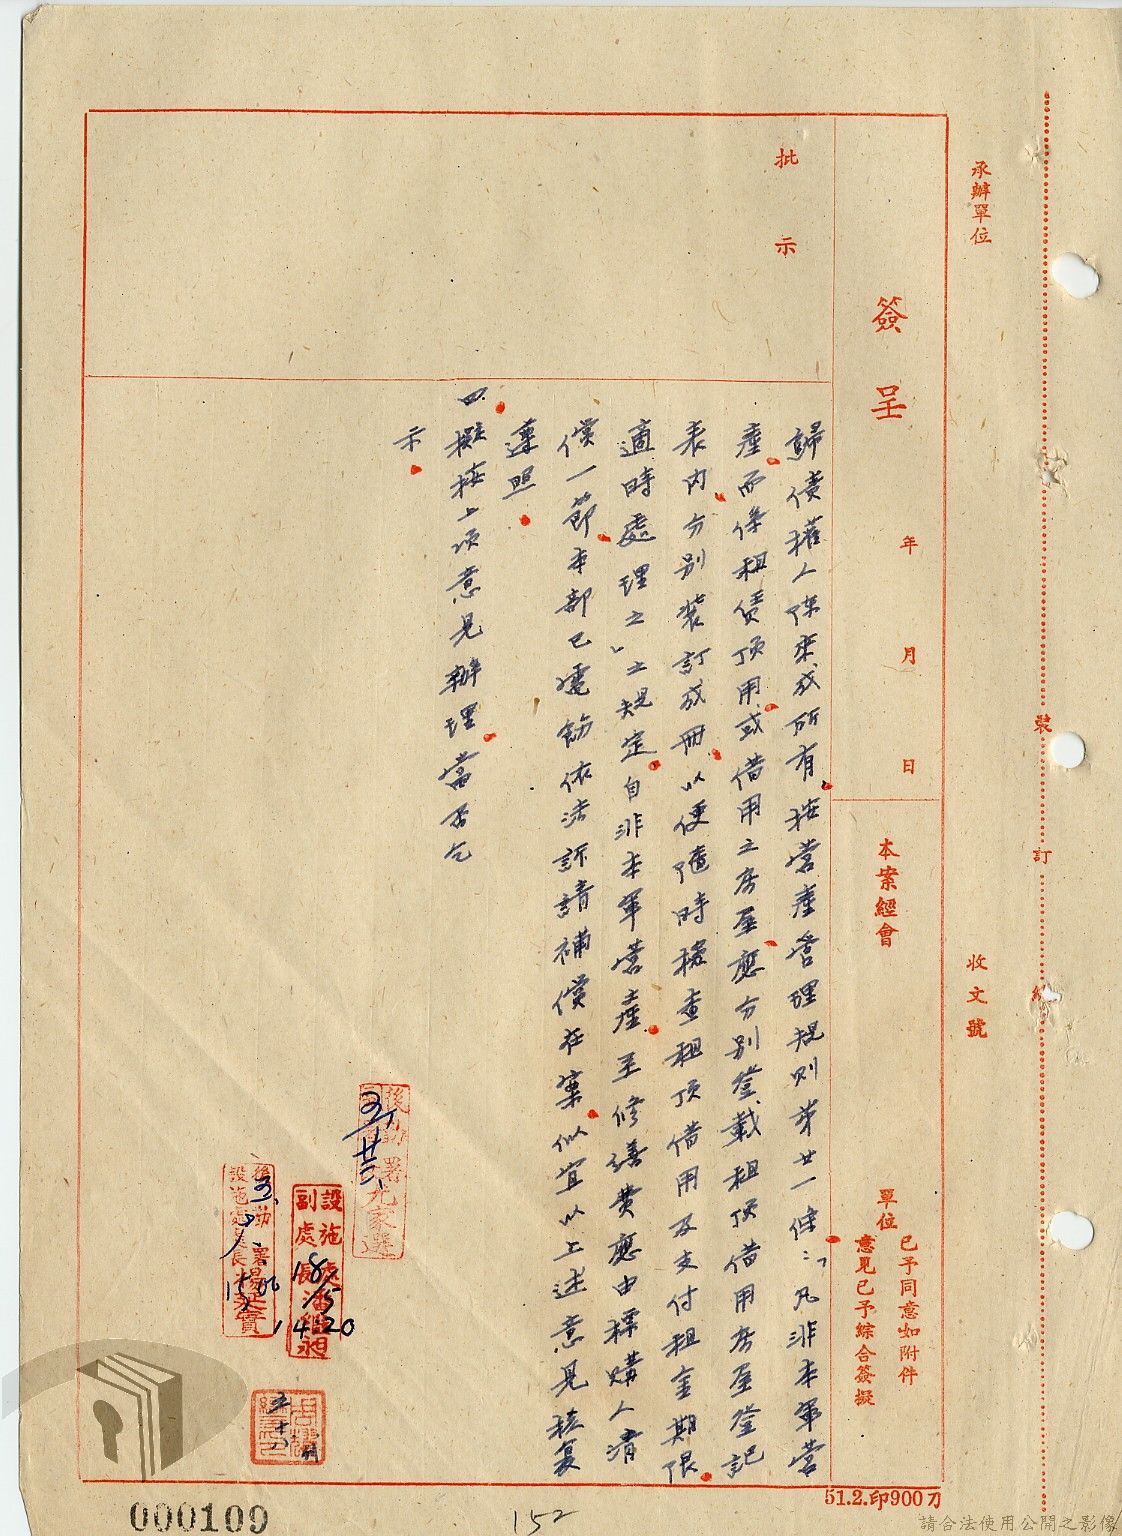 承辦單位
收文號
裝
訂
線
簽呈
年
月
日
本案經會
單位
已予同意如附件
意見已予綜合簽擬
批示
歸債權人陳來成所有按營產管理規則第廿一條：「凡非本軍營
產而係租賃頂用或借用之房屋應分別登載租頂借用房屋登記
表內分別裝訂成冊以便隨時稽查租頂借用及支付租金期限
適時處理之」之規定自非本軍營產至修繕費應由標購人清
償一節本部已電飭依法訴請補償在案似宜以上述意見核复
遵照
四.擬按上項意見辦理當否乞
示
後勤署
設施處
副處長潘
18/5
1420
後勤署
設施處長楊
1500
五十八
51.2.印900刀
000109
152
請合法使用公開之影像